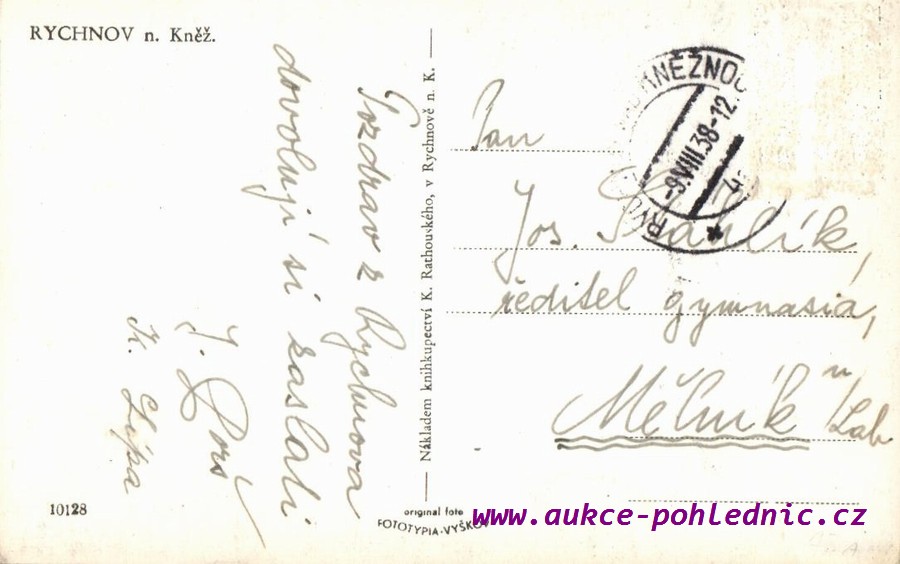 RYCHNOV n. Kněž.
Pozdrav z Rychnova
dovolují si zaslati
J. Pors
K. Lípa
Nákladem knihkupectví K. Rathouského, v Rychnově n. K.
KNĚŽNOU
-9.VIII.38-12
Pan
Jos.
ředitel gymnasia,
Mělník n/Lab
10128
original foto
FOTOTYPIA-VYŠKOV
www.aukce-pohlednic.cz